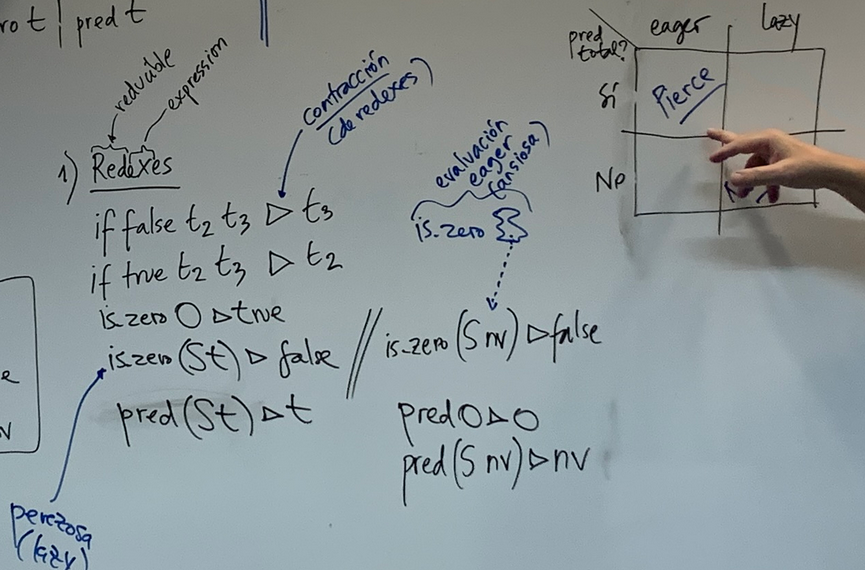 ro t | pred t
reduable
expression
1) Redexes
contracción
(de redexes)
if false t₂ t₃ ▷ t₃
if true t₂ t₃ ▷ t₂
is-zero O ▷ true
is-zero (S t) ▷ false
pred (S t) ▷ t
perezosa
(lazy)
evaluación
eager
(ansiosa)
is-zero
is-zero (S nv) ▷ false
pred O ▷ O
pred (S nv) ▷ nv
pred total?
eager
lazy
Sí
Pierce
No
e
v